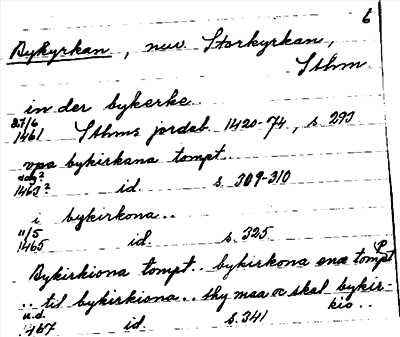 6
Bykyrkan, nuv. Storkyrkan,
Sthm
in der bykerke
27/6
1461 Sthms jordeb. 1420-74, s. 293
vpa bykirkana tompt..
odg?
1463? id. s. 309-310
i bykirkona..
11/5
1465 id. s. 325
Bykirkiona tompt.. bykirkona ena tompt
.. til bykirkiona.. thy maa oc skal bykir-
kio..
u.d.
1467 id. s. 341